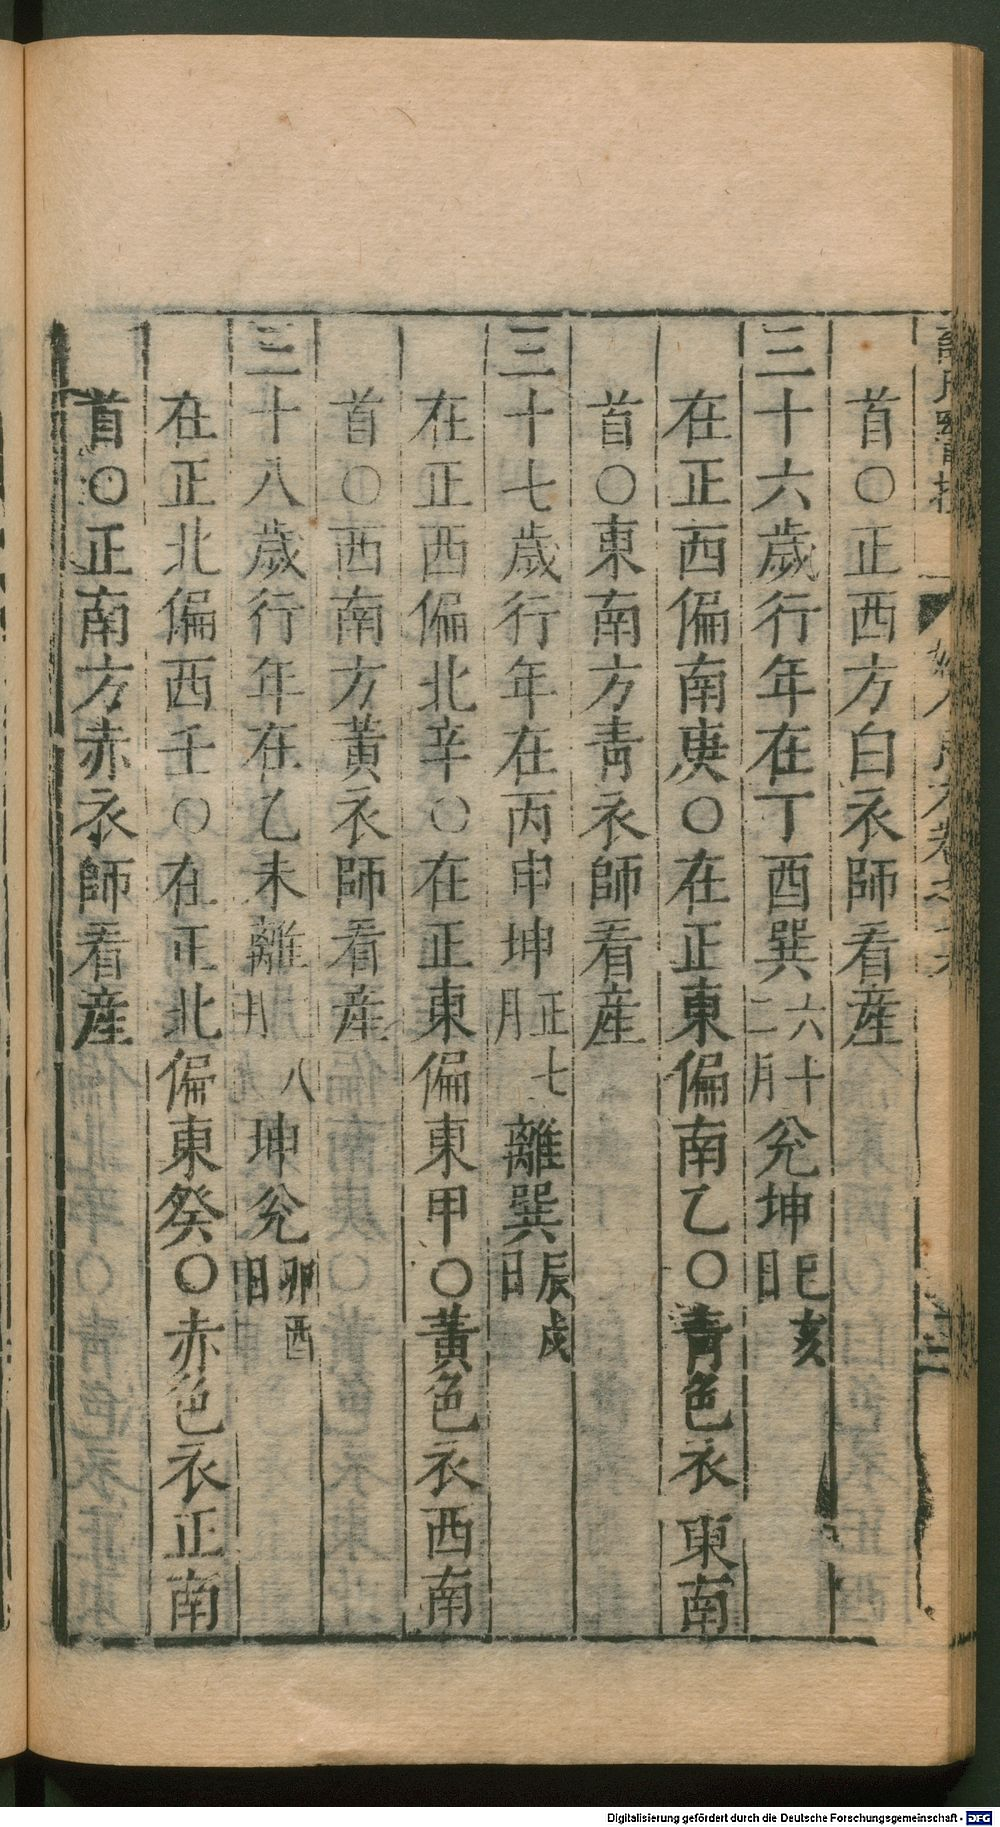 首〇正西方白衣師看產
三十六歲行年在丁酉巽六十二月兌坤巳亥日
在正西偏南庚〇在正東偏南乙〇青色衣東南
首〇東南方青衣師看產
三十七歲行年在丙申坤正七月離巽辰戌日
在正西偏北辛〇在正東偏東甲〇黃色衣西南
首〇西南方黃衣師看產
三十八歲行年在乙未離八月坤兌卯酉日
在正北偏西壬〇在正北偏東癸〇赤色衣正南
首〇正南方赤衣師看產
Digitalisierung gefördert durch die Deutsche Forschungsgemeinschaft - DFG